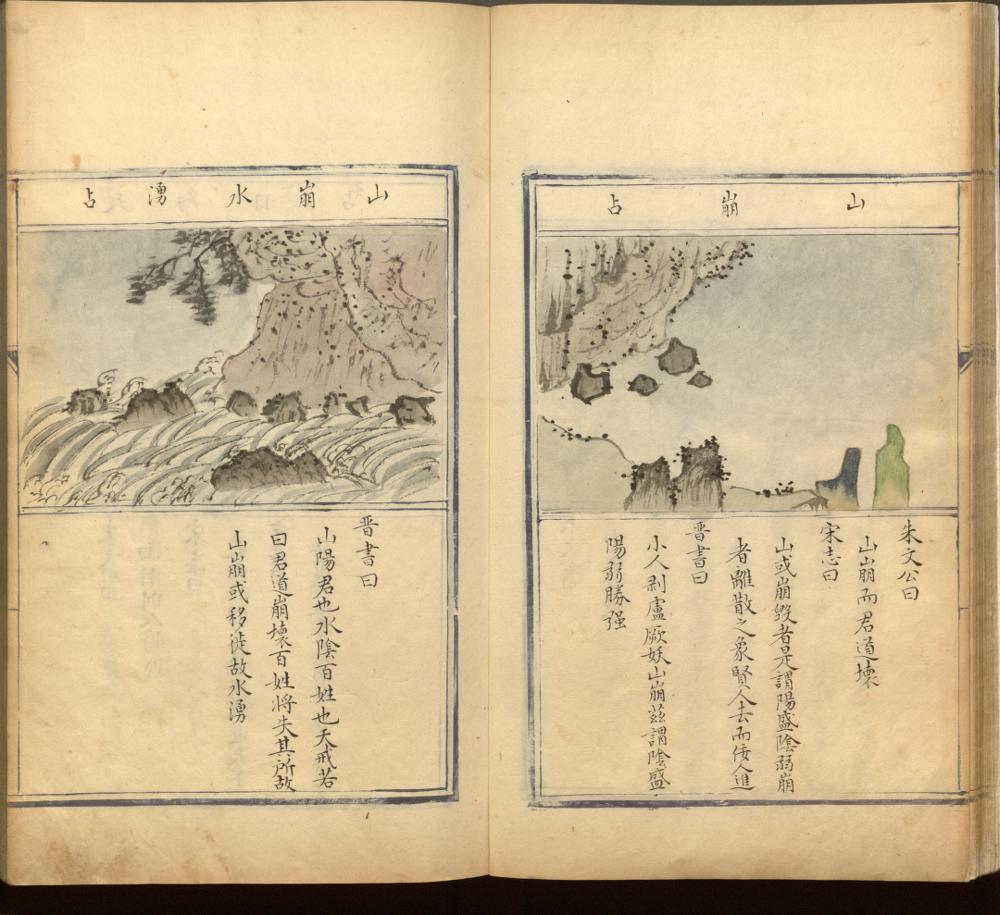 山崩占
朱文公曰
山崩而君道壞
宋志曰
山或崩毀者是謂陽盛陰弱崩
者離散之象賢人去而佞人進
晋書曰
小人剥盧厥妖山崩茲謂陰盛
陽弱勝强
山崩水湧占
晋書曰
山陽君也水陰百姓也天戒若
曰君道崩壞百姓將失其所故
山崩或移徙故水湧